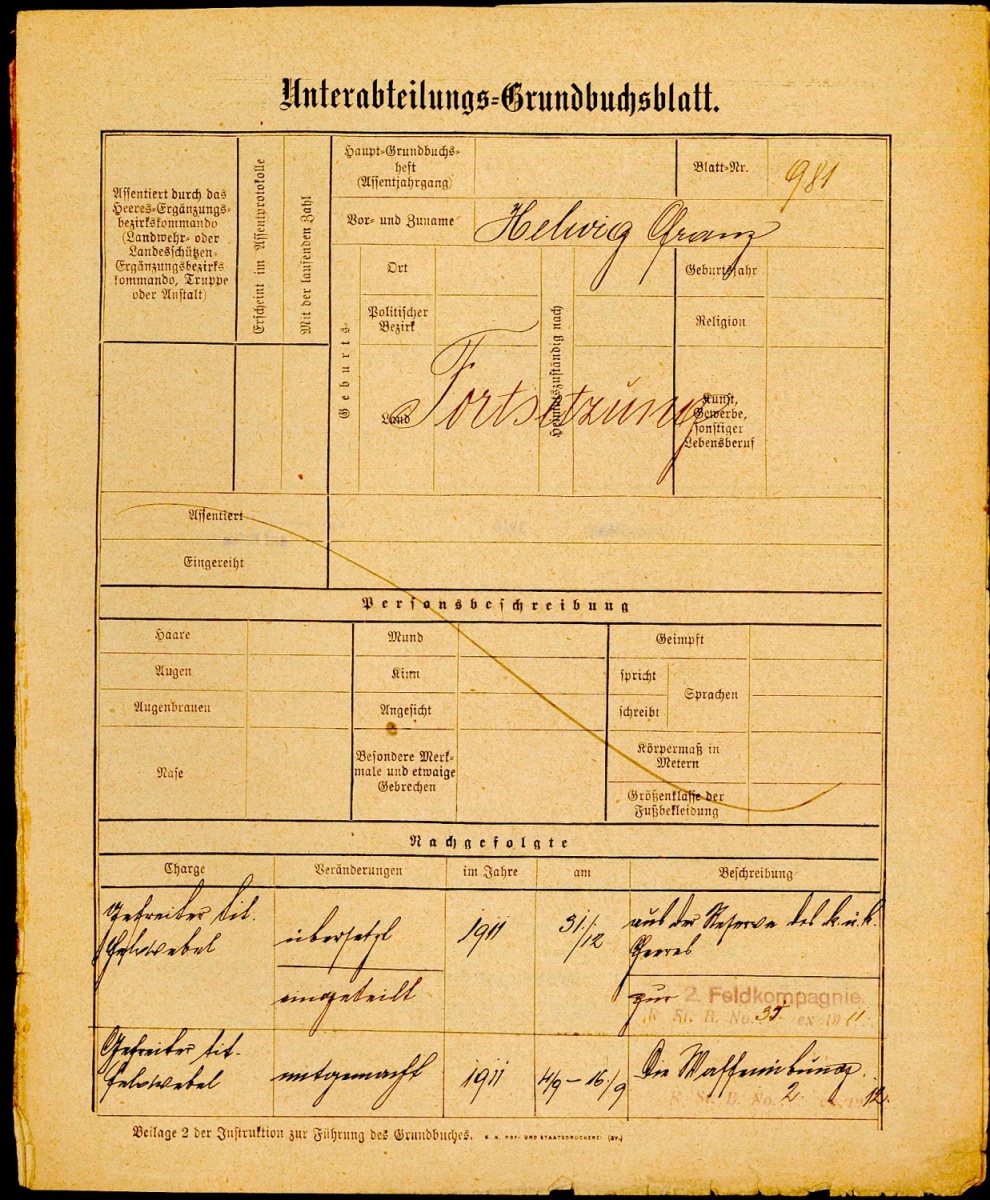 Unterabteilungs=Grundbuchsblatt.
Assentiert durch das
Heeres-Ergänzungs-
bezirkskommando
(Landwehr- oder
Landesschützen-
Ergänzungsbezirks
kommando, Truppe
oder Anstalt)
Erscheint im Assentprotokolle
Mit der laufenden Zahl
Haupt=Grundbuchs-
heft
(Assentjahrgang)
Blatt=Nr.
981
Vor- und Zuname
Helwig Franz
Geburts-
Ort
Politischer
Bezirk
Land
Heimatszuständig nach
Geburtsjahr
Religion
Kunst,
Gewerbe,
sonstiger
Lebensberuf
Fortsetzung
Assentiert
Eingereiht
Personsbeschreibung
Haare
Augen
Augenbrauen
Nase
Mund
Kinn
Angesicht
Besondere Merk-
male und etwaige
Gebrechen
Geimpft
spricht
schreibt
Sprachen
Körpermaß in
Metern
Größenklasse der
Fußbekleidung
Nachgefolgte
Charge Veränderungen im Jahre am Beschreibung
Gefreiter tit.
Feldwebel
übersetzt 1911 31/12 aus der Reserve des k. u. k.
Heeres
eingeteilt zur 2. Feldkompagnie.
St. B. No. 35 ex 1911
Gefreiter tit.
Feldwebel
mitgemacht 1911 4/9 – 16/9 Die Waffenübung.
St. B. No. 2 12.
Beilage 2 der Instruktion zur Führung des Grundbuches. K. K. HOF- UND STAATSDRUCKEREI